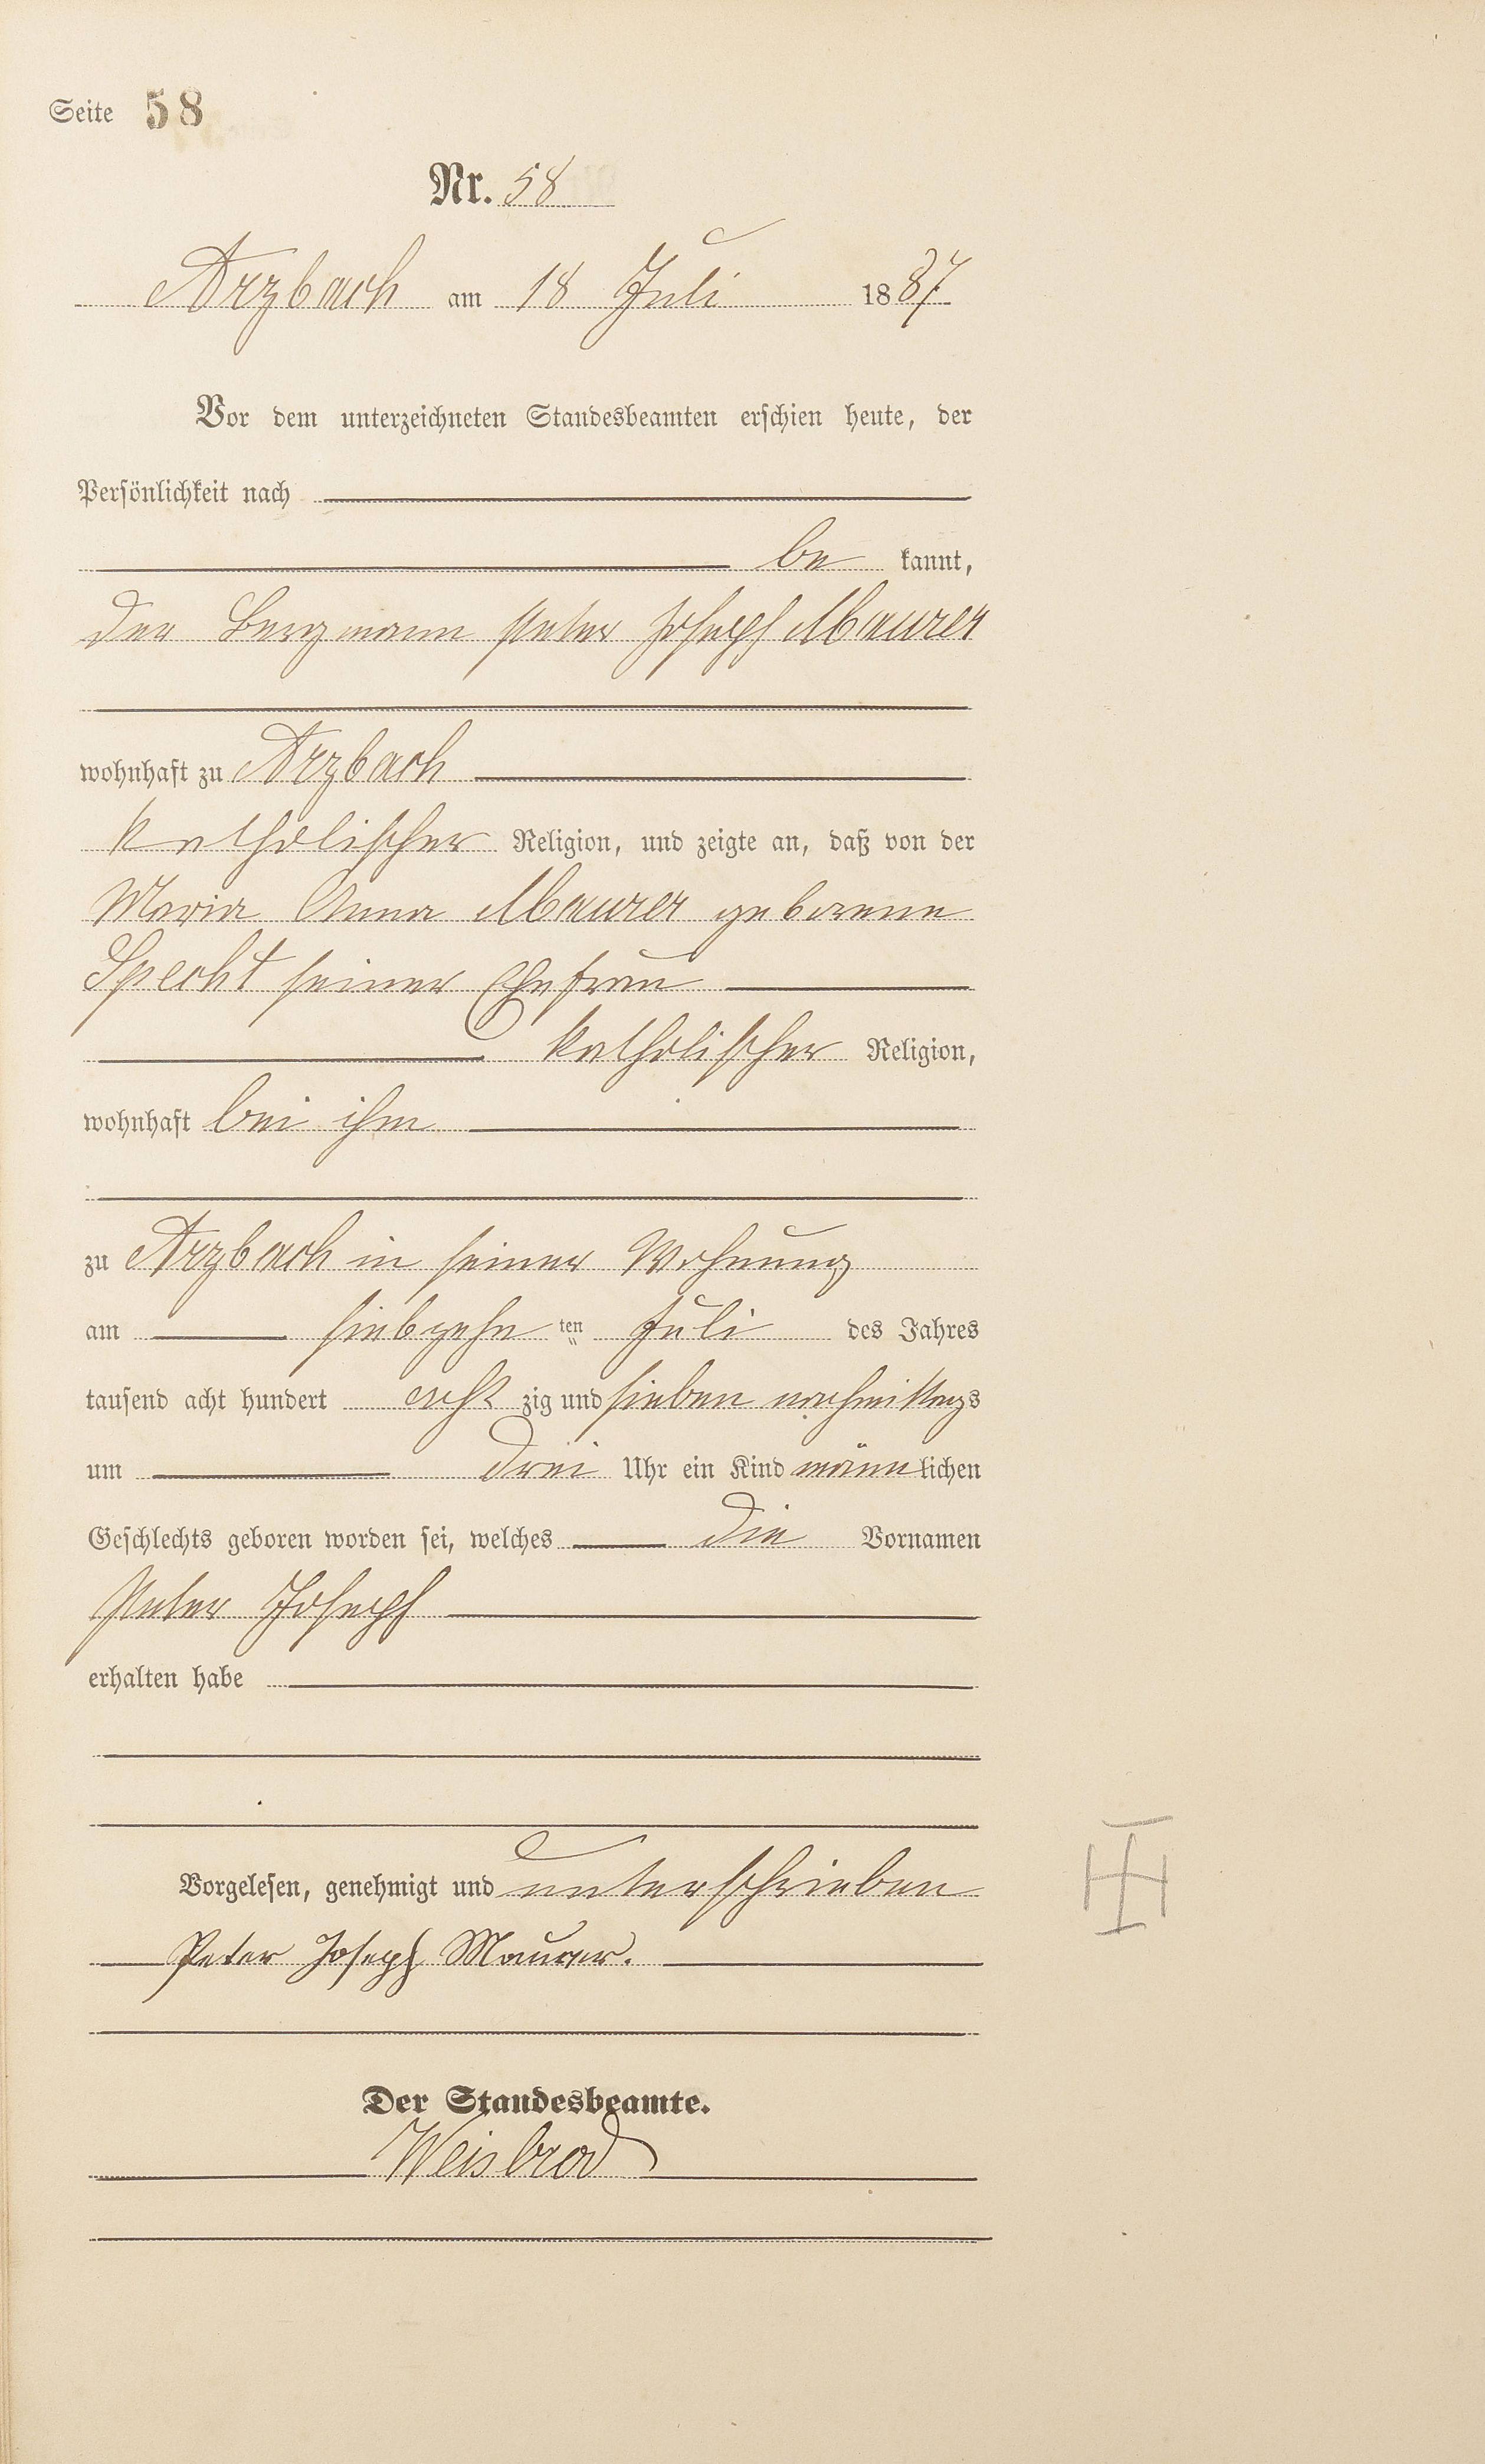 Seite 58
Nr. 58
Arzbach am 18 Juli 1887
Vor dem unterzeichneten Standesbeamten erschien heute, der
Persönlichkeit nach
be kannt,
der Bergmann Peter Joseph Maurer
wohnhaft zu Arzbach
katholischer Religion, und zeigte an, daß von der
Maria Anna Maurer geborene
Specht seiner Ehefrau
katholischer Religion,
wohnhaft bei ihm
zu Arzbach in seiner Wohnung
am siebzehn ten Juli des Jahres
tausend acht hundert acht zig und sieben nachmittags
um drei Uhr ein Kind männlichen
Geschlechts geboren worden sei, welches die Vornamen
Peter Joseph
erhalten habe
Vorgelesen, genehmigt und unterschrieben
Peter Joseph Maurer.
Der Standesbeamte.
Weisbrod